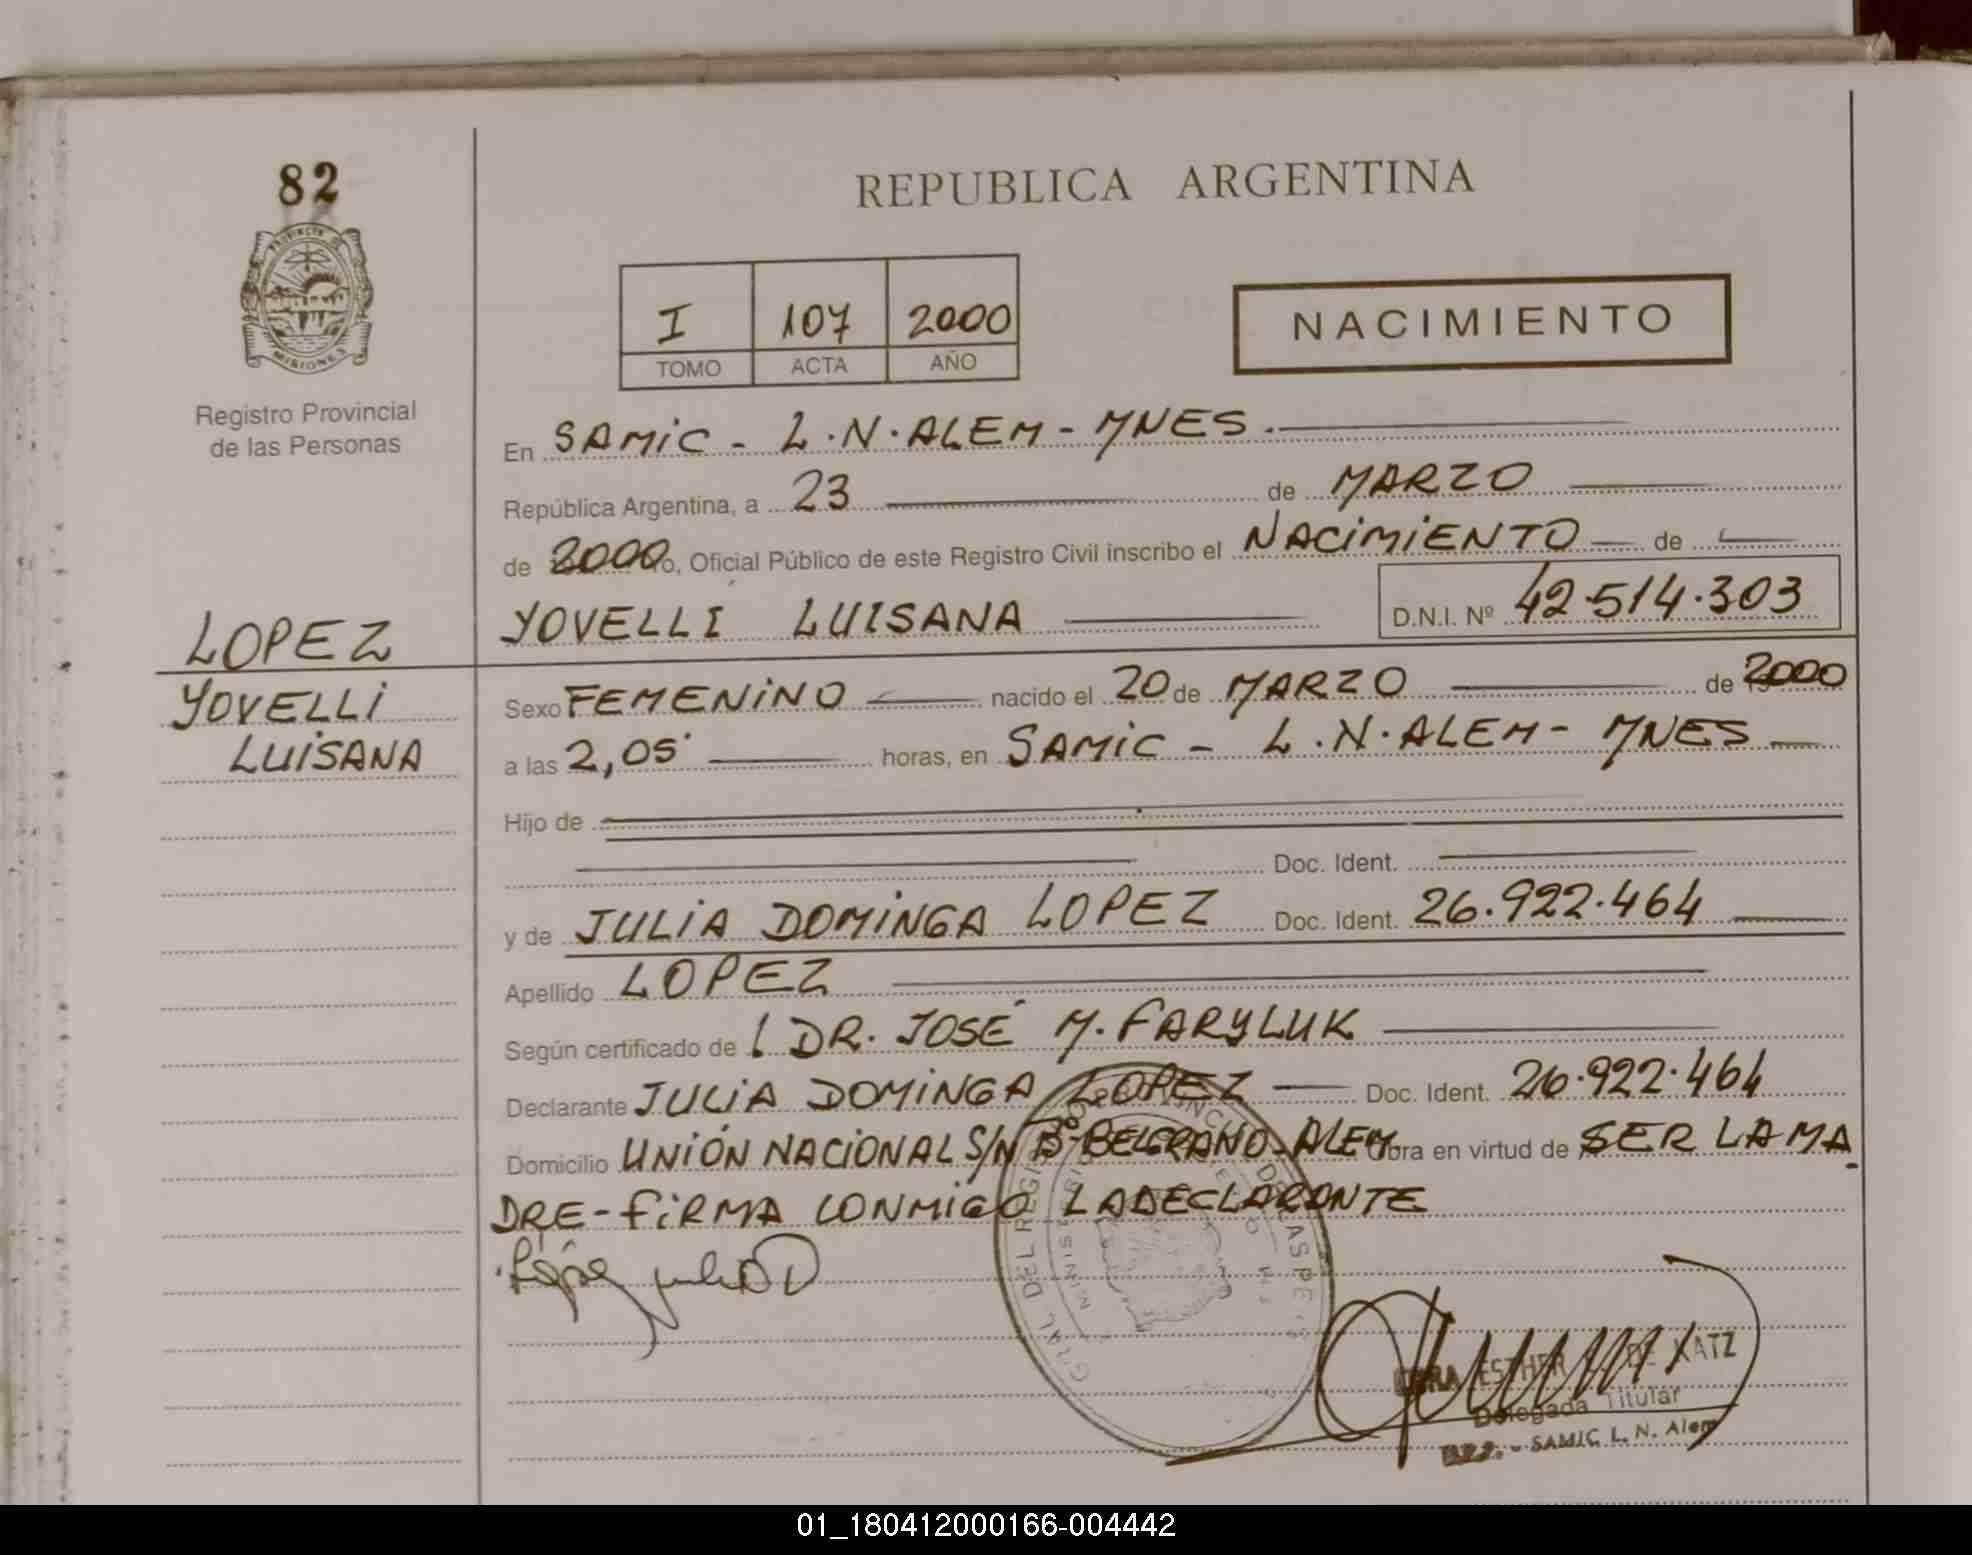 82
PROVINCIA DE
MISIONES
Registro Provincial
de las Personas
REPUBLICA ARGENTINA
I 107 2000
TOMO ACTA AÑO
NACIMIENTO
En SAMiC - L.N.ALEM - MNES.
República Argentina, a 23 de MARZO
de 2000, Oficial Público de este Registro Civil inscribo el NACiMiENTO de
YOVELLI LUISANA D.N.I. Nº 42.514.303
LOPEZ
YOVELLi
LUiSANA
Sexo FEMENiNO nacido el 20 de MARZO de 2000
a las 2,05 horas, en SAMiC - L.N.ALEM - MNES
Hijo de
Doc. Ident.
y de JULiA DOMiNGA LOPEZ Doc. Ident. 26.922.464
Apellido LOPEZ
Según certificado de DR. JOSÉ M. FARYLUK
Declarante JULiA DOMiNGA LOPEZ Doc. Ident. 26.922.464
Domicilio UNiÓN NACiONAL S/N Bº BELGRANO-ALEM Obra en virtud de SER LA MA
DRE-FiRMA CONMiGO LA DECLARANTE
López Julia D
ESTHER DE KATZ
Delegada Titular
R.P.P. - SAMIC L. N. Alem
01_180412000166-004442